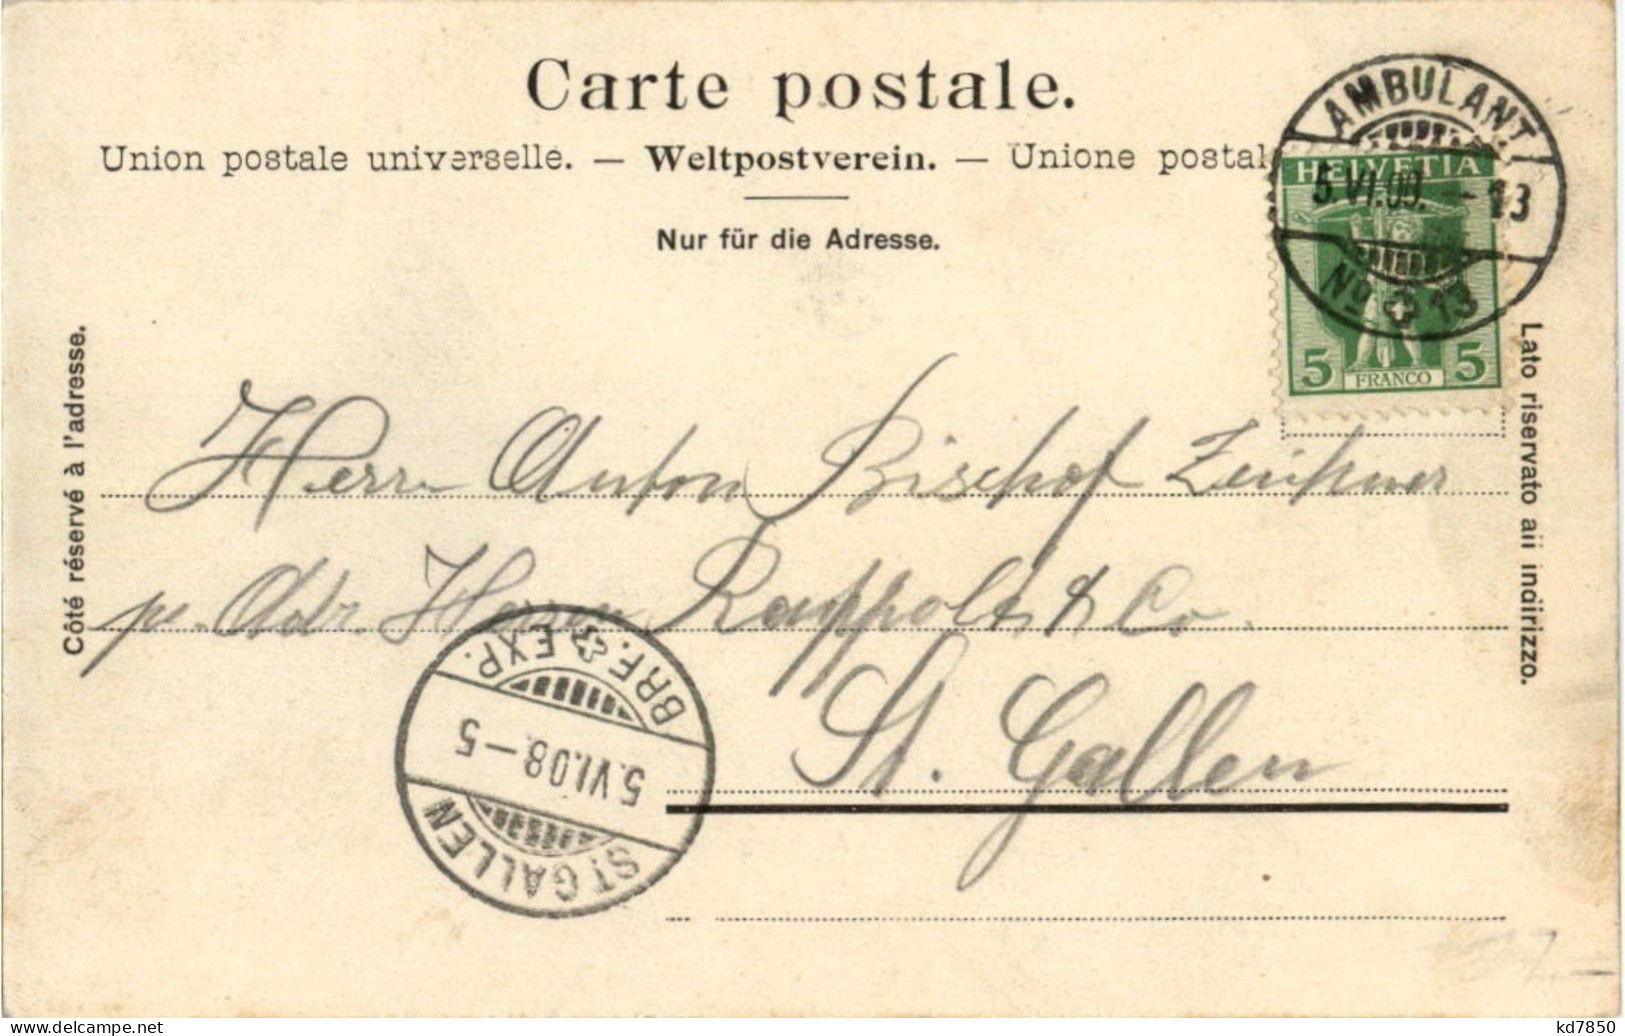 Carte postale.
Union postale universelle. — Weltpostverein. — Unione postal
Nur für die Adresse.
AMBULANT
5.VI.09. -13
No 13
HELVETIA
5 FRANCO 5
Côté réservé à l'adresse.
Lato riservato aii indirizzo.
Herr Anton Bischof
pr. Adr. & Co.
St. Gallen
BRF. EXP.
5.VI.08-5
ST. GALLEN
kd7850